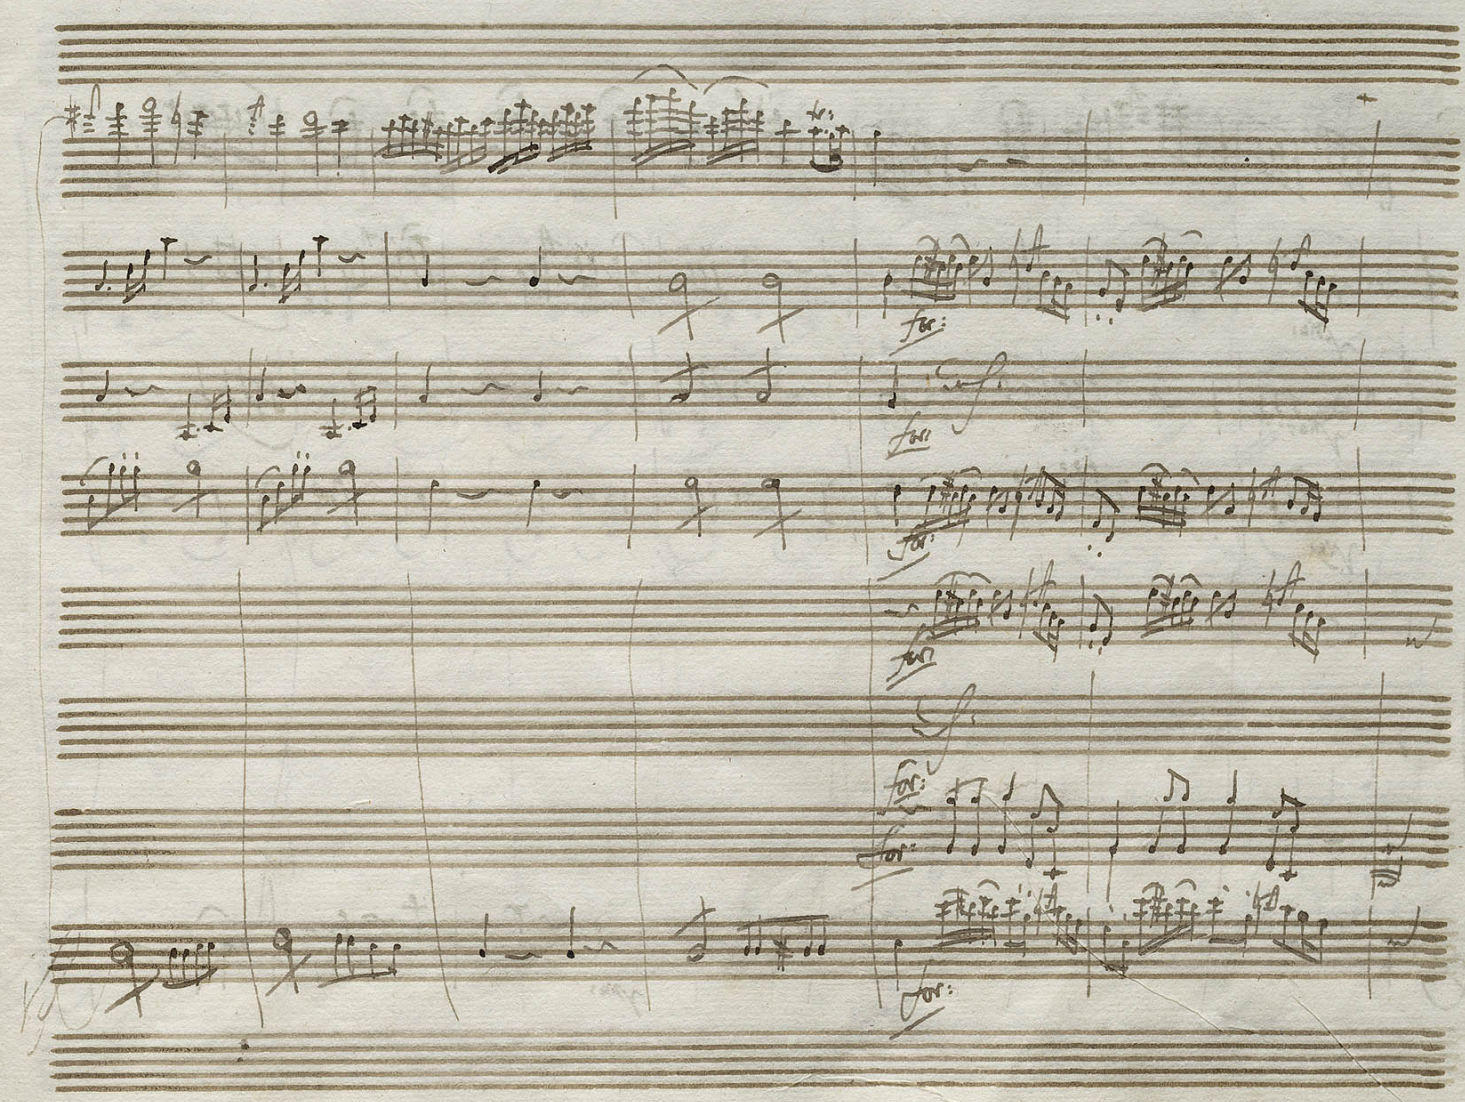 tr:
for:
for:
for:
for:
for:
for:
for: